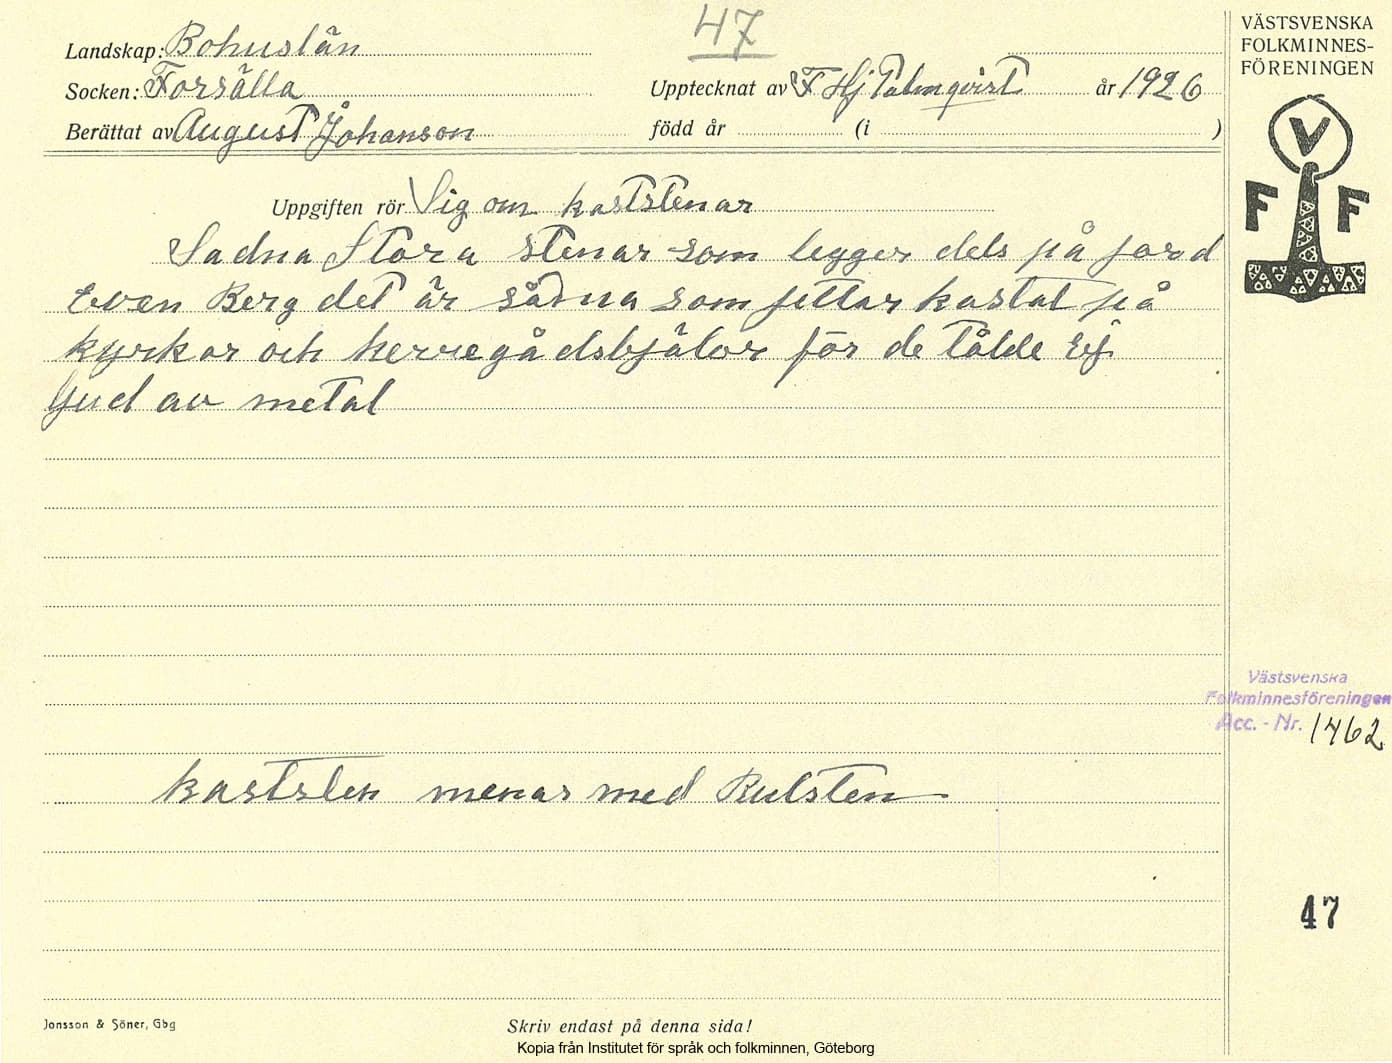 47
VÄSTSVENSKA
FOLKMINNES-
FÖRENINGEN
Landskap: Bohuslän
Socken: Forsälla Upptecknat av F Hj Palmqvist år 1926
Berättat av August Johanson född år (i )
V
F F
Uppgiften rör Sig om kaststenar
Sadna Stora stenar som legger dels på jord
även Berg det är sådna som jettar kastat på
kyrkor och herregådsbjälor för de tålde Ej
ljud av metal
Västsvenska
Folkminnesföreningen
Acc. - Nr. 1462
kaststen menas med Rulsten
47
Jonsson & Söner, Gbg
Skriv endast på denna sida!
Kopia från Institutet för språk och folkminnen, Göteborg